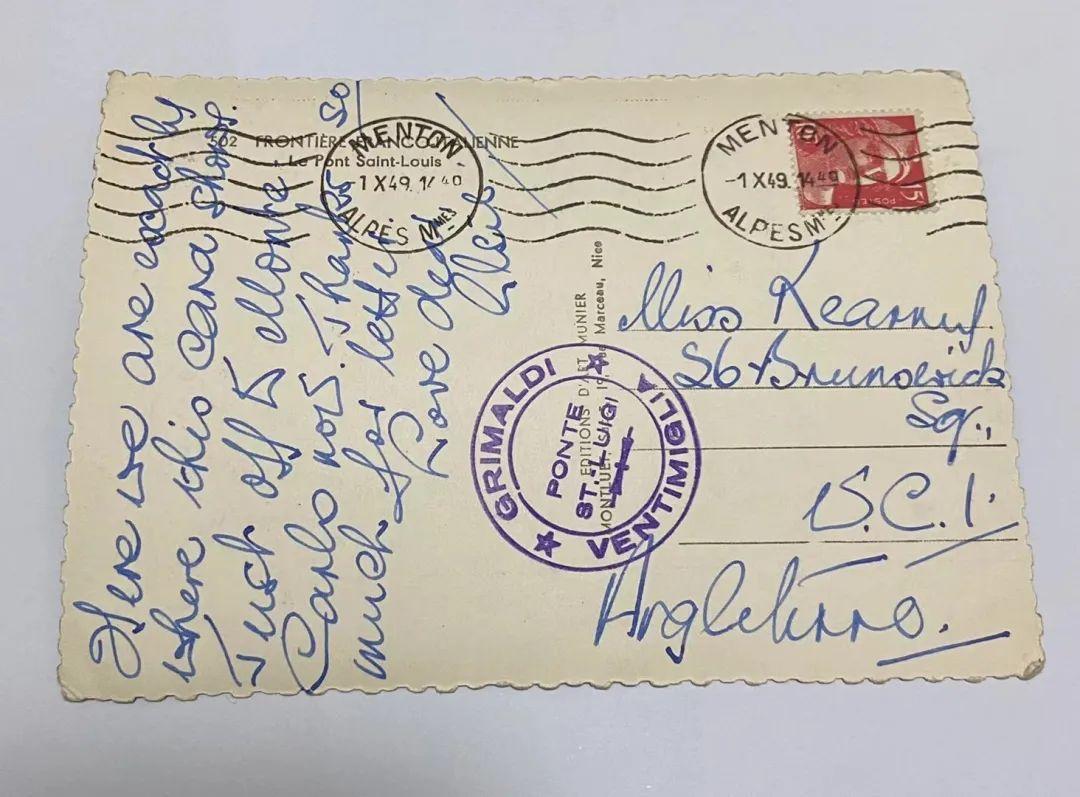 502 FRONTIÈRE FRANCO-ITALIENNE
Le Pont Saint-Louis
MENTON
-1 X49. 14 40
ALPES MMES
MENTON
-1 X49. 14 40
ALPES MMES
POSTES
15
Here we are exactly
where this card shows.
Just off to Monte
Carlo now. Thanks so
much for letter
Love dear
EDITIONS D'ART MUNIER
MONTLUET, 19, Rue Marceau, Nice
GRIMALDI
PONTE
ST. LUIGI
VENTIMIGLIA
Miss
26 Brunswick
Sq.,
W.C.1.
Angleterre.